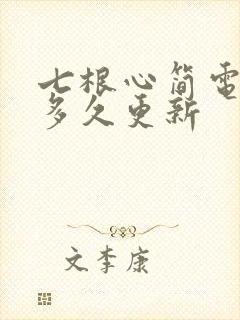 七根心简電
多久更新
文李康